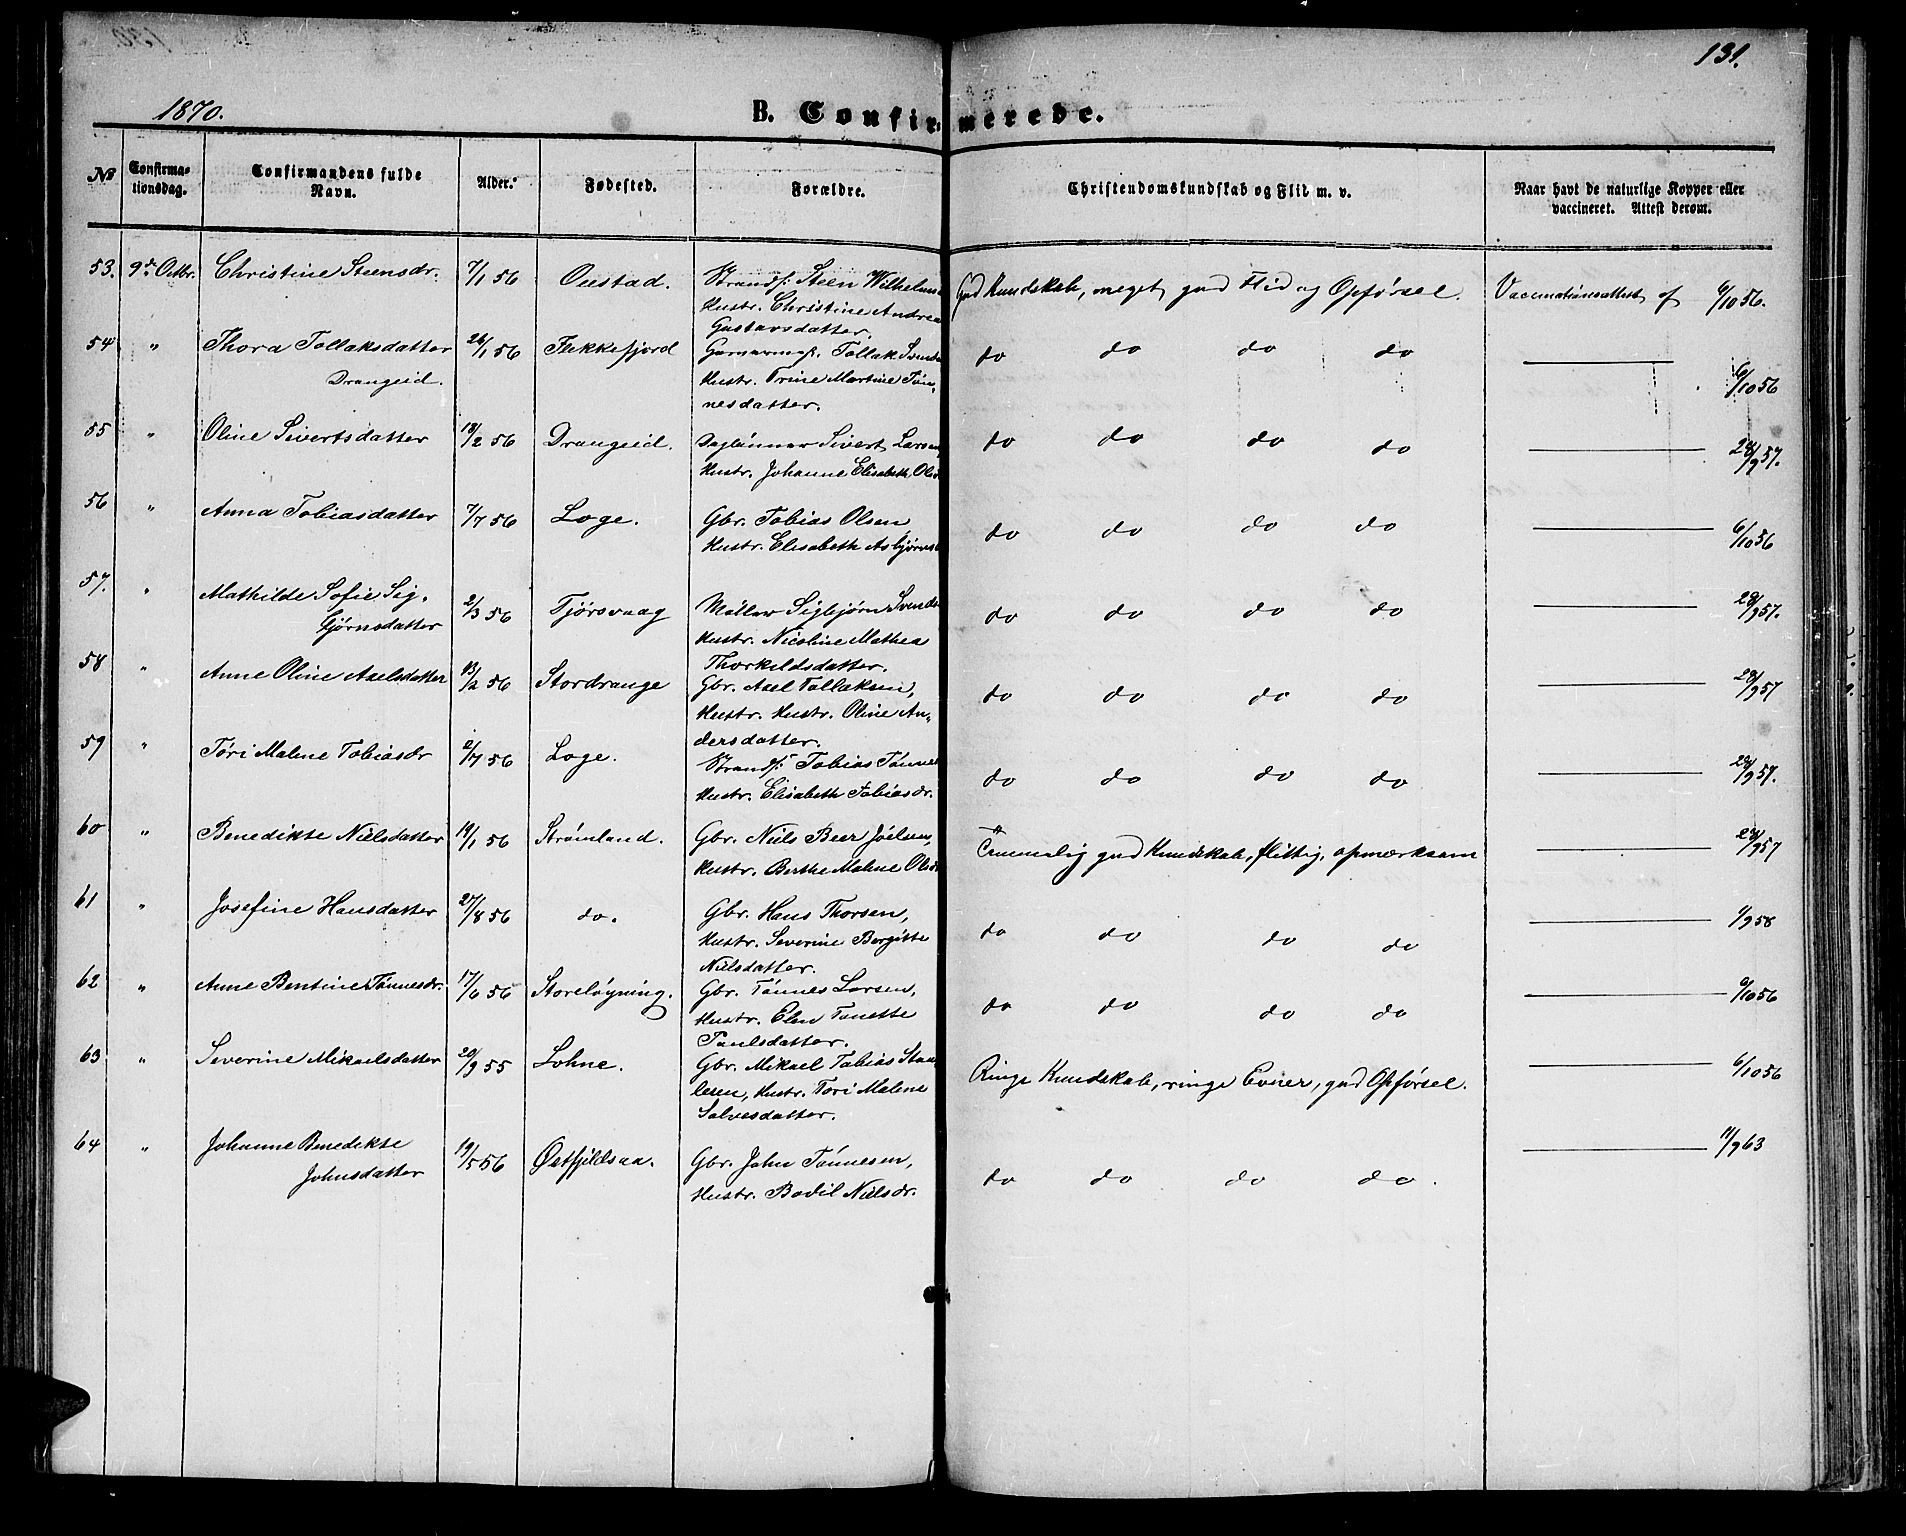 131.
1870.
B. Confirmerede.
No
Confirma-
tionsdag.
Confirmandens fulde
Navn.
Alder.
Fødested.
Forældre.
Christendomskundskab og Flid m. v.
Naar havt de naturlige Kopper eller
vaccineret. Attest derom.
53. 9de Octbr. Christine Steensdr. 7/1 56 Oustad. Strands. Steen Wilhelms God Kundskab, meget god Flid og Opførsel. Vaccinationsattest af 6/10 56.
Hustr. Christine Andrea
Gustavsdatter.
54 " Thora Tollaksdatter 26/1 56 Flekkefjord Garverms. Tollak Svends do do do do 6/10 56
Drangeid. Hustr. Trine Martine Tøn-
nesdatter.
55 " Oline Sivertsdatter 18/2 56 Drangeid. Daglønner Sivert Larsen do do do do 28/9 57.
Hustr. Johanne Elisabeth Olsd
56 " Anna Tobiasdatter 7/7 56 Loge. Gbr. Tobias Olsen do do do do 6/10 56
Hustr. Elisabeth Asbjørnsd
57. " Mathilde Sofie Sig- 2/3 56 Tjørsvaag Møller Sigbjørn Svends do do do do 28/9 57.
bjørnsdatter Hustr. Nicoline Mathea
Thorkildsdatter.
58 " Anne Oline Axelsdatter 13/2 56 Stordrange Gbr. Axel Tollaksen, do do do do 28/9 57
Hustr. Hustr. Oline An-
dersdatter.
59 " Tøri Malene Tobiasdr 2/7 56 Loge. Strands. Tobias Tønnes do do do do 28/9 57.
Hustr. Elisabeth Tobiasdr.
60 " Benedikte Nielsdatter 19/1 56 Strømland. Gbr. Niels Beer Joelsen, Temmelig god Kundskab, flittig, opmærksom 28/9 57
Hustr. Berthe Malene Olsd
61 " Josefine Hansdatter 27/8 56 do. Gbr. Hans Thorsen, do do do do 1/9 58
Hustr. Severine Bergitte
Nielsdatter.
62 " Anne Bentine Tønnesdr. 17/6 56 Storeløgning. Gbr. Tønnes Larsen, do do do do 6/10 56
Hustr. Elen Tonette
Paulsdatter.
63 " Severine Mikaelsdatter 20/9 55 Lohne. Gbr. Mikael Tobias Staa- Ringe Kundskab, ringe Evner, god Opførsel. 6/10 56
lesen, Hustr. Tøri Malene
Salvesdatter.
64 " Johanne Benedikte 19/5 56 Østfjeldsaa. Gbr. John Tønnesen, do do do do. 11/9 63
Johnsdatter Hustr. Bodil Nielsdr.